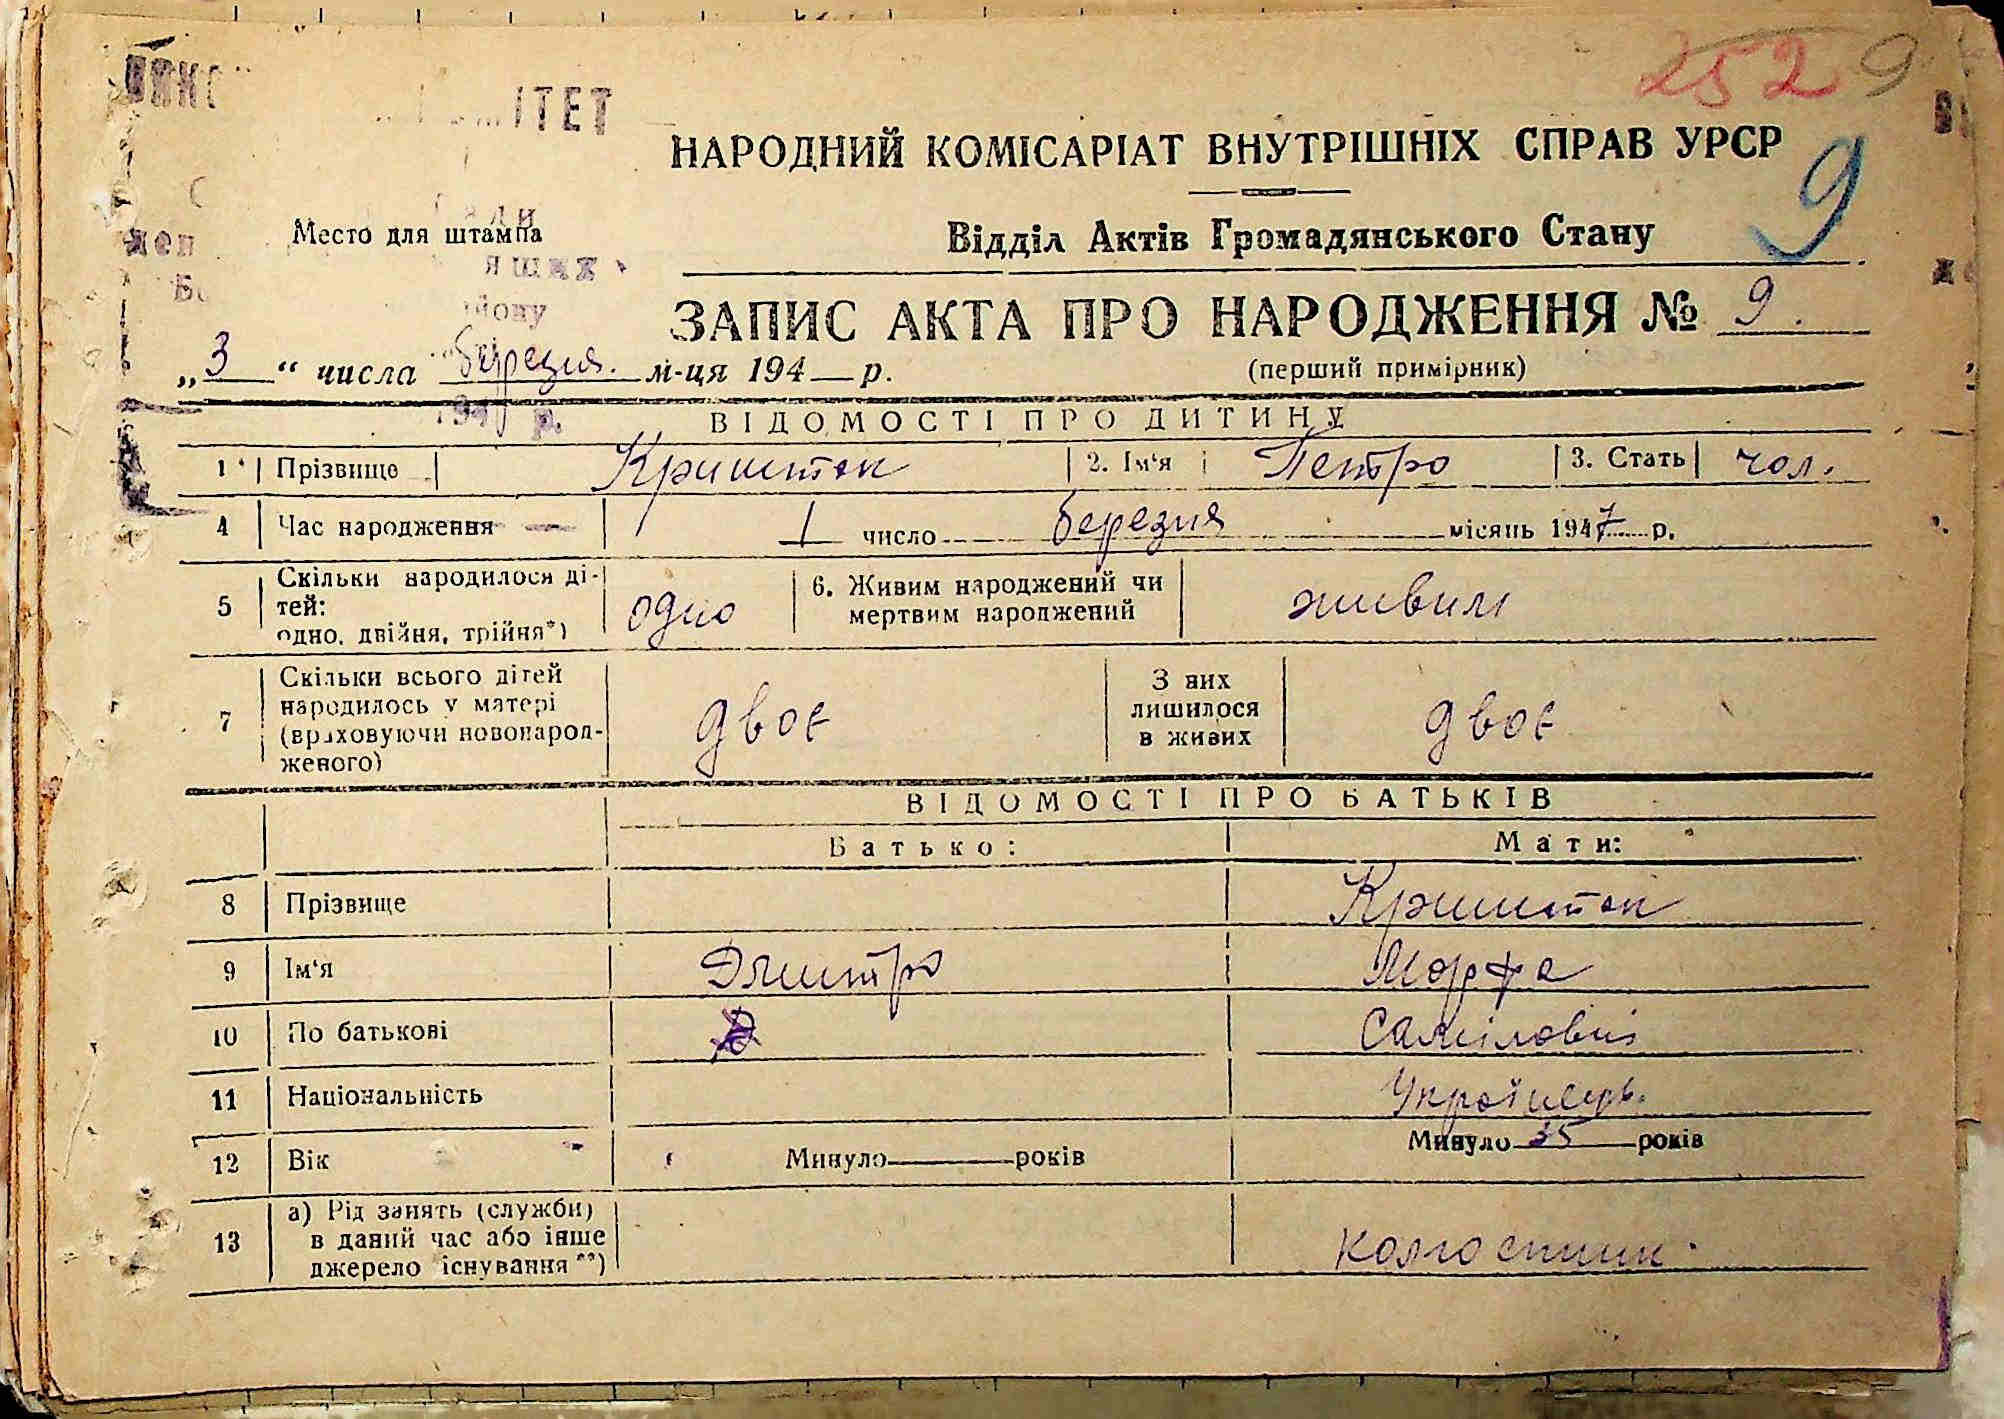 252 9
ІТЕТ
НАРОДНИЙ КОМІСАРІАТ ВНУТРІШНІХ СПРАВ УРСР
9
Место для штампа
Відділ Актів Громадянського Стану
ЗАПИС АКТА ПРО НАРОДЖЕННЯ № 9.
„3“ числа березня. м-ця 194 р.
(перший примірник)
ВІДОМОСТІ ПРО ДИТИНУ
1 Прізвище Криштоп 2. Ім'я Петро 3. Стать чол.
4 Час народження 1 число березня місяць 1947 р.
5 Скільки народилося ді-
тей:
одно, двійня, трійня*)
одно
6. Живим народжений чи
мертвим народжений
живим
7 Скільки всього дітей
народилось у матері
(враховуючи новонарод-
женого)
двоє
З них
лишилося
в живих
двоє
ВІДОМОСТІ ПРО БАТЬКІВ
Батько: Мати:
8 Прізвище Криштоп
9 Ім'я Дмитро Морфа
10 По батькові Самілович
11 Національність Українець.
12 Вік Минуло років Минуло 35 років
13 а) Рід занять (служби)
в даний час або інше
джерело існування **)
колгоспник.